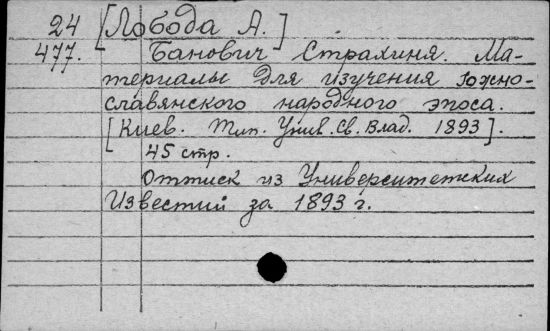 24 [Лобода А.]
477. Банович Страхиня. Ма-
териалы для изучения южно-
славянского народного эпоса.
[Киев. Тип. Унив. Св. Влад. 1893].
45 стр.
Оттиск из Университетских
Известий за 1893 г.